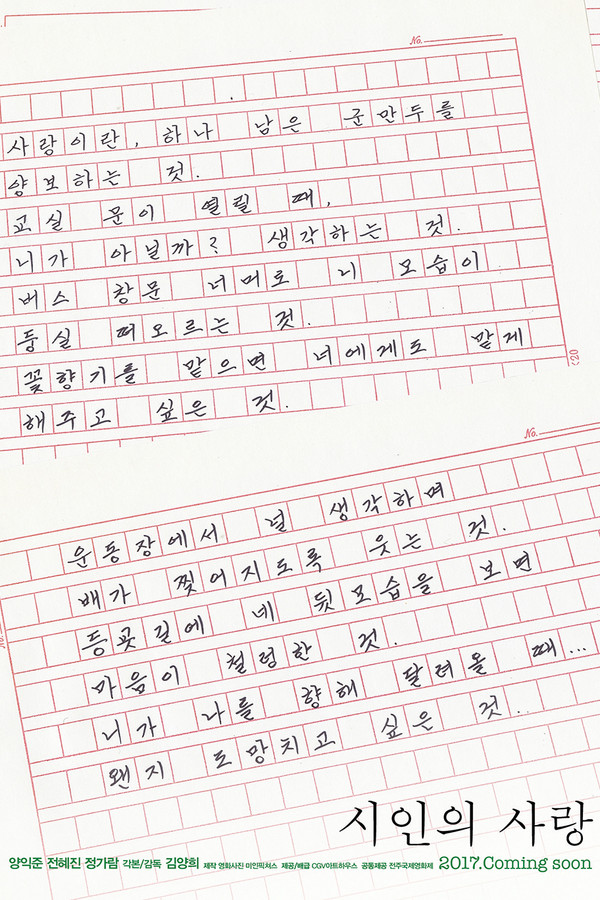 No.
.
사랑이란, 하나 남은 군만두를
양보하는 것.
교실 문이 열릴 때,
니가 아닐까? 생각하는 것.
버스 창문 너머로 니 모습이
둥실 떠오르는 것.
꽃향기를 맡으면 너에게도 맡게
해주고 싶은 것.
No.
운동장에서 널 생각하며
배가 찢어지도록 웃는 것.
등굣길에 네 뒷모습을 보면
마음이 철렁한 것.
니가 나를 향해 달려올 때...
왠지 도망치고 싶은 것.
시인의 사랑
양익준 전혜진 정가람 각본/감독 김양희 제작 영화사진 미인픽쳐스 제공/배급 CGV아트하우스 공동제공 전주국제영화제 2017.Coming soon